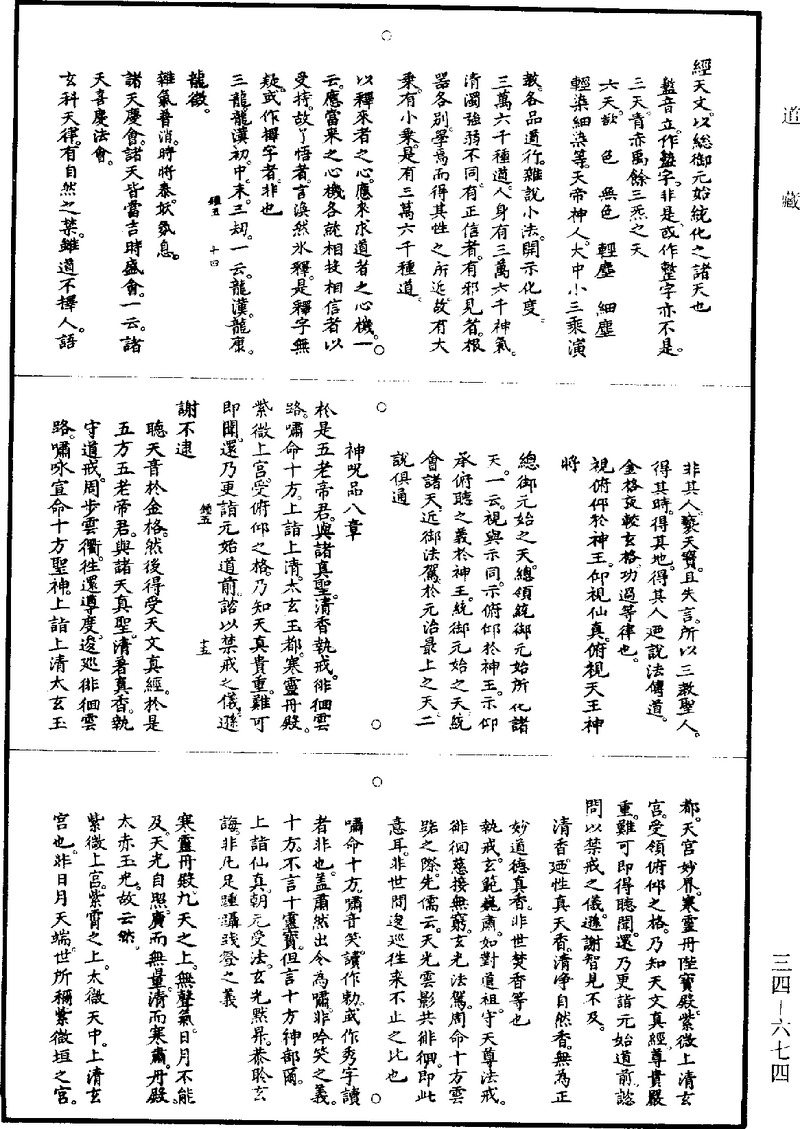 道藏
經天文。以総御元始統化之諸天也
盩音立。作盩字。非是。或作整字亦不是。
三天。青赤禹餘三炁之天
六天。欲　色　無色　輕塵　細塵
輕染細染等。天帝神人。大中小三乘演
教。各品道行。雜說小法。開示化度。
三萬六千種道。人身有三萬六千神氣。
清濁強弱不同。有正信者。有邪見者。根
器各別。學焉而得其性之所近。故有大
乘。有小乘。是有三萬六千種道。
以釋來者之心。應來求道者之心機。一
云。應當來之心機各統相接相信者以
受持。故了悟者。言渙然氷釋。是釋字無
疑。或作擇字者。非也
三龍。龍漢初。中。末。三劫。一云。龍漢。龍康。
龍徵。
雜氣普消。時將泰。妖氛息。
諸天慶會。諸天皆當吉時盛會。一云。諸
天喜慶法會。
玄科天律。有自然之禁。雖道不擇人。語
非其人。褻天寶。且失言。所以三教聖人。
得其時。得其地。得其人廼說法傳道。
金格。亥較玄格。功過等律也。
視俯仰於神王。仰視仙真。俯視天王神
將
總御元始之天。總領統御元始所化諸
天。一云。視與示同。示俯仰於神王。示仰
承俯聽之義於神王。統御元始之天。統
會諸天。近御法駕。於元治最上之天。二
說俱通
神呪品八章
於是五老帝君。與諸真聖。清香執戒。徘徊雲
路。嘯命十方。上詣上清。太玄玉都。寒靈丹殿。
紫微上宮。受俯仰之格。乃知天真貴重。難可
即聞。還乃更詣元始道前。諮以禁戒之儀。遜
謝不逮
聽天音於金格。然後得受天文真經。於是
五方五老帝君。與諸天真聖。清著真香。執
守道戒。周步雲衢。往還導度。逡巡徘徊雲
路。嘯咏宣命十方聖神。上詣上清太玄玉
都。天宮妙界。寒靈丹陛寶殿。紫微上清玄
宮。受領俯仰之格。乃知天文真經。尊貴嚴
重。難可即得聽聞。還乃更詣元始道前。諮
問以禁戒之儀。遜謝智見不及。
清香。廼性真天香。清淨自然香。無為正
妙道德真香。非世焚香等也
執戒。玄範巍肅。如對道祖。守天尊法戒。
徘徊。慈接無窮。玄光法駕。周命十方雲
路之際。先儒云。天光雲影共徘徊。即此
意耳。非世間逡巡往來不止之比也
嘯命十方。嘯音笑。讀作勅。或作秀字讀
者。非也。蓋肅然出令為嘯。非吟笑之義。
十方。不言十靈寶。但言十方神部爾。
上詣仙真。朝元受法。玄光默昇。恭聆玄
誨。非凡足踵躡踐登之義
寒靈丹殿。九天之上。無聲氣。日月不能
及。天光自照。廣而無量。清而寒肅。丹殿。
太赤玉光。故云然。
紫微上宮。紫霄之上。太微天中。上清玄
宮也。非日月天端。世所稱紫微垣之宮。
三四—六七四